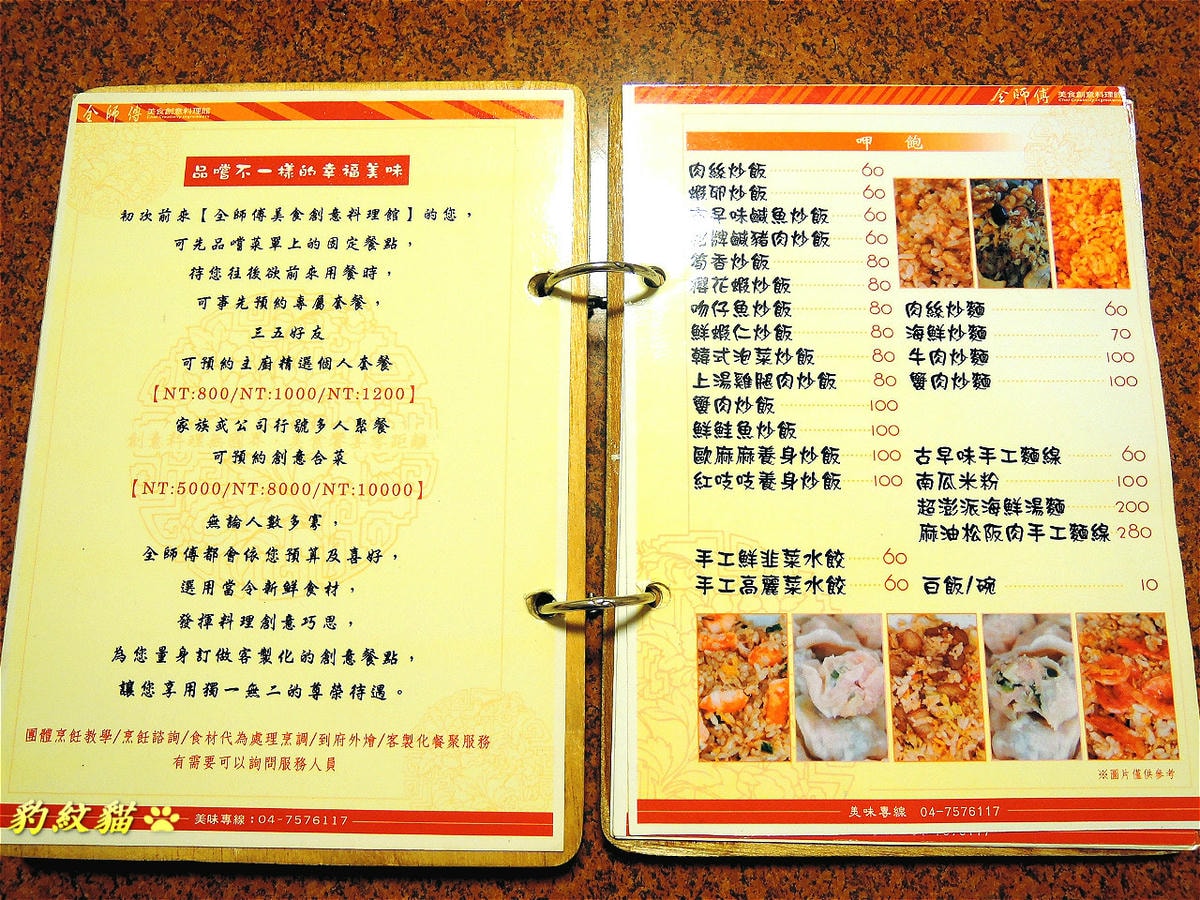 全師傅 美食創意料理館
Chef Creativity Ingredients
品嚐不一樣的幸福美味
初次前來【全師傅美食創意料理館】的您，
可先品嚐菜單上的固定餐點，
待您往後欲前來用餐時，
可事先預約專屬套餐，
三五好友
可預約主廚精選個人套餐
【NT:800/NT:1000/NT:1200】
家族或公司行號多人聚餐
可預約創意合菜
【NT:5000/NT:8000/NT:10000】
無論人數多寡，
全師傅都會依您預算及喜好，
選用當令新鮮食材，
發揮料理創意巧思，
為您量身訂做客製化的創意餐點，
讓您享用獨一無二的尊榮待遇。
團體烹飪教學/烹飪諮詢/食材代為處理烹調/到府外燴/客製化餐聚服務
有需要可以詢問服務人員
美味專線：04-7576117
豹紋貓
全師傅 美食創意料理館
呷 飽
肉絲炒飯 60
蝦卵炒飯 60
古早味鹹魚炒飯 60
老牌鹹豬肉炒飯 60
筍香炒飯 80
櫻花蝦炒飯 80
吻仔魚炒飯 80
鮮蝦仁炒飯 80
韓式泡菜炒飯 80
上湯雞腿肉炒飯 80
蟹肉炒飯 100
鮮鮭魚炒飯 100
歐麻麻養身炒飯 100
紅吱吱養身炒飯 100
手工鮮韭菜水餃 60
手工高麗菜水餃 60
肉絲炒麵 60
海鮮炒麵 70
牛肉炒麵 100
蟹肉炒麵 100
古早味手工麵線 60
南瓜米粉 100
超澎派海鮮湯麵 200
麻油松阪肉手工麵線 280
白飯/碗 10
※圖片僅供參考
美味專線 04-7576117